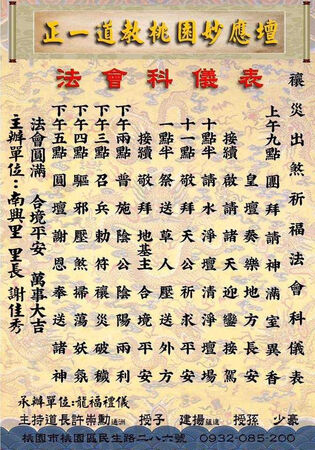 正一道教桃園妙應壇
法會科儀表
禳災出煞祈福法會科儀表
上午九點 團拜請神滿室異香
啟壇奏樂地方長安
接續 請諸天迎鑾接駕
十點半 請水淨壇清淨場
十一點 敬拜天公祈求平安
一點半 祭送草人壓送外方
接續 敬拜地基主合境平安
下午兩點 普施陰公陰陽兩利
下午三點 敕符禳災破穢
下午四點 驅邪壓煞掃蕩妖氛
下午五點 圓壇謝恩奉送諸神
法會圓滿 合境平安 萬事大吉
主辦單位：南興里 里長 謝佳秀
承辦單位：龍福禮儀
主持道長許崇勳 授子 建揚 授孫 少豪
桃園市桃園區民生路二八六號 0932-085-200